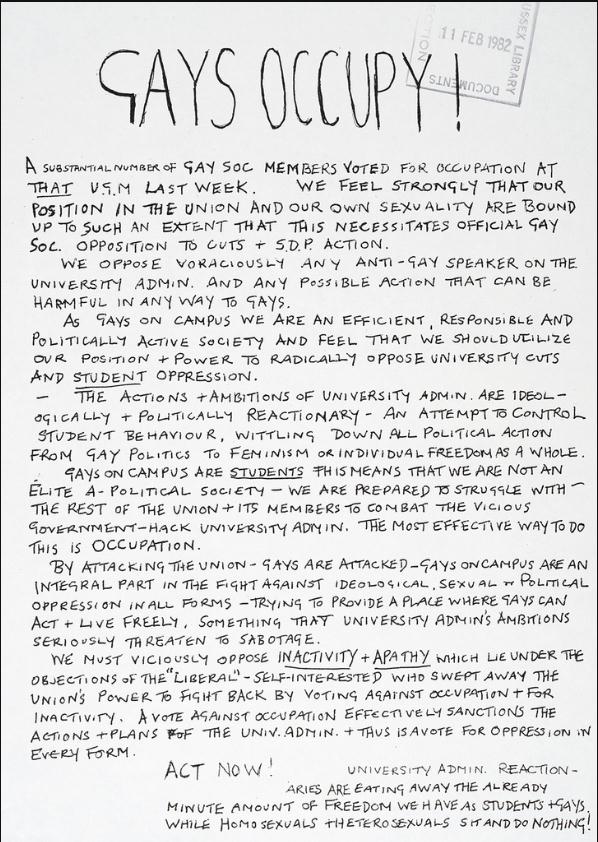 USSEX LIBRARY
11 FEB 1982
DOCUMENTS
CTION
GAYS OCCUPY!
A SUBSTANTIAL NUMBER OF GAY SOC MEMBERS VOTED FOR OCCUPATION AT
THAT U.G.M LAST WEEK. WE FEEL STRONGLY THAT OUR
POSITION IN THE UNION AND OUR OWN SEXUALITY ARE BOUND
UP TO SUCH AN EXTENT THAT THIS NECESSITATES OFFICIAL GAY
SOC. OPPOSITION TO CUTS + S.D.P. ACTION.
WE OPPOSE VORACIOUSLY ANY ANTI-GAY SPEAKER ON THE
UNIVERSITY ADMIN. AND ANY POSSIBLE ACTION THAT CAN BE
HARMFUL IN ANY WAY TO GAYS.
AS GAYS ON CAMPUS WE ARE AN EFFICIENT, RESPONSIBLE AND
POLITICALLY ACTIVE SOCIETY AND FEEL THAT WE SHOULD UTILIZE
OUR POSITION + POWER TO RADICALLY OPPOSE UNIVERSITY CUTS
AND STUDENT OPPRESSION.
— THE ACTIONS + AMBITIONS OF UNIVERSITY ADMIN. ARE IDEOL-
OGICALLY + POLITICALLY REACTIONARY - AN ATTEMPT TO CONTROL
STUDENT BEHAVIOUR, WITTLING DOWN ALL POLITICAL ACTION
FROM GAY POLITICS TO FEMINISM OR INDIVIDUAL FREEDOM AS A WHOLE.
GAYS ON CAMPUS ARE STUDENTS THIS MEANS THAT WE ARE NOT AN
ÉLITE A-POLITICAL SOCIETY - WE ARE PREPARED TO STRUGGLE WITH -
THE REST OF THE UNION + ITS MEMBERS TO COMBAT THE VICIOUS
GOVERNMENT-HACK UNIVERSITY ADMIN. THE MOST EFFECTIVE WAY TO DO
THIS IS OCCUPATION.
BY ATTACKING THE UNION - GAYS ARE ATTACKED - GAYS ON CAMPUS ARE AN
INTEGRAL PART IN THE FIGHT AGAINST IDEOLOGICAL, SEXUAL or POLITICAL
OPPRESSION IN ALL FORMS - TRYING TO PROVIDE A PLACE WHERE GAYS CAN
ACT + LIVE FREELY, SOMETHING THAT UNIVERSITY ADMIN'S AMBITIONS
SERIOUSLY THREATEN TO SABOTAGE.
WE MUST VICIOUSLY OPPOSE INACTIVITY + APATHY WHICH LIE UNDER THE
OBJECTIONS OF THE "LIBERAL" - SELF-INTERESTED WHO SWEPT AWAY THE
UNION'S POWER TO FIGHT BACK BY VOTING AGAINST OCCUPATION + FOR
INACTIVITY. A VOTE AGAINST OCCUPATION EFFECTIVELY SANCTIONS THE
ACTIONS + PLANS OF THE UNIV. ADMIN. + THUS IS A VOTE FOR OPPRESSION IN
EVERY FORM.
ACT NOW! UNIVERSITY ADMIN. REACTION-
ARIES ARE EATING AWAY THE ALREADY
MINUTE AMOUNT OF FREEDOM WE HAVE AS STUDENTS + GAYS,
WHILE HOMOSEXUALS + HETEROSEXUALS SIT AND DO NOTHING!